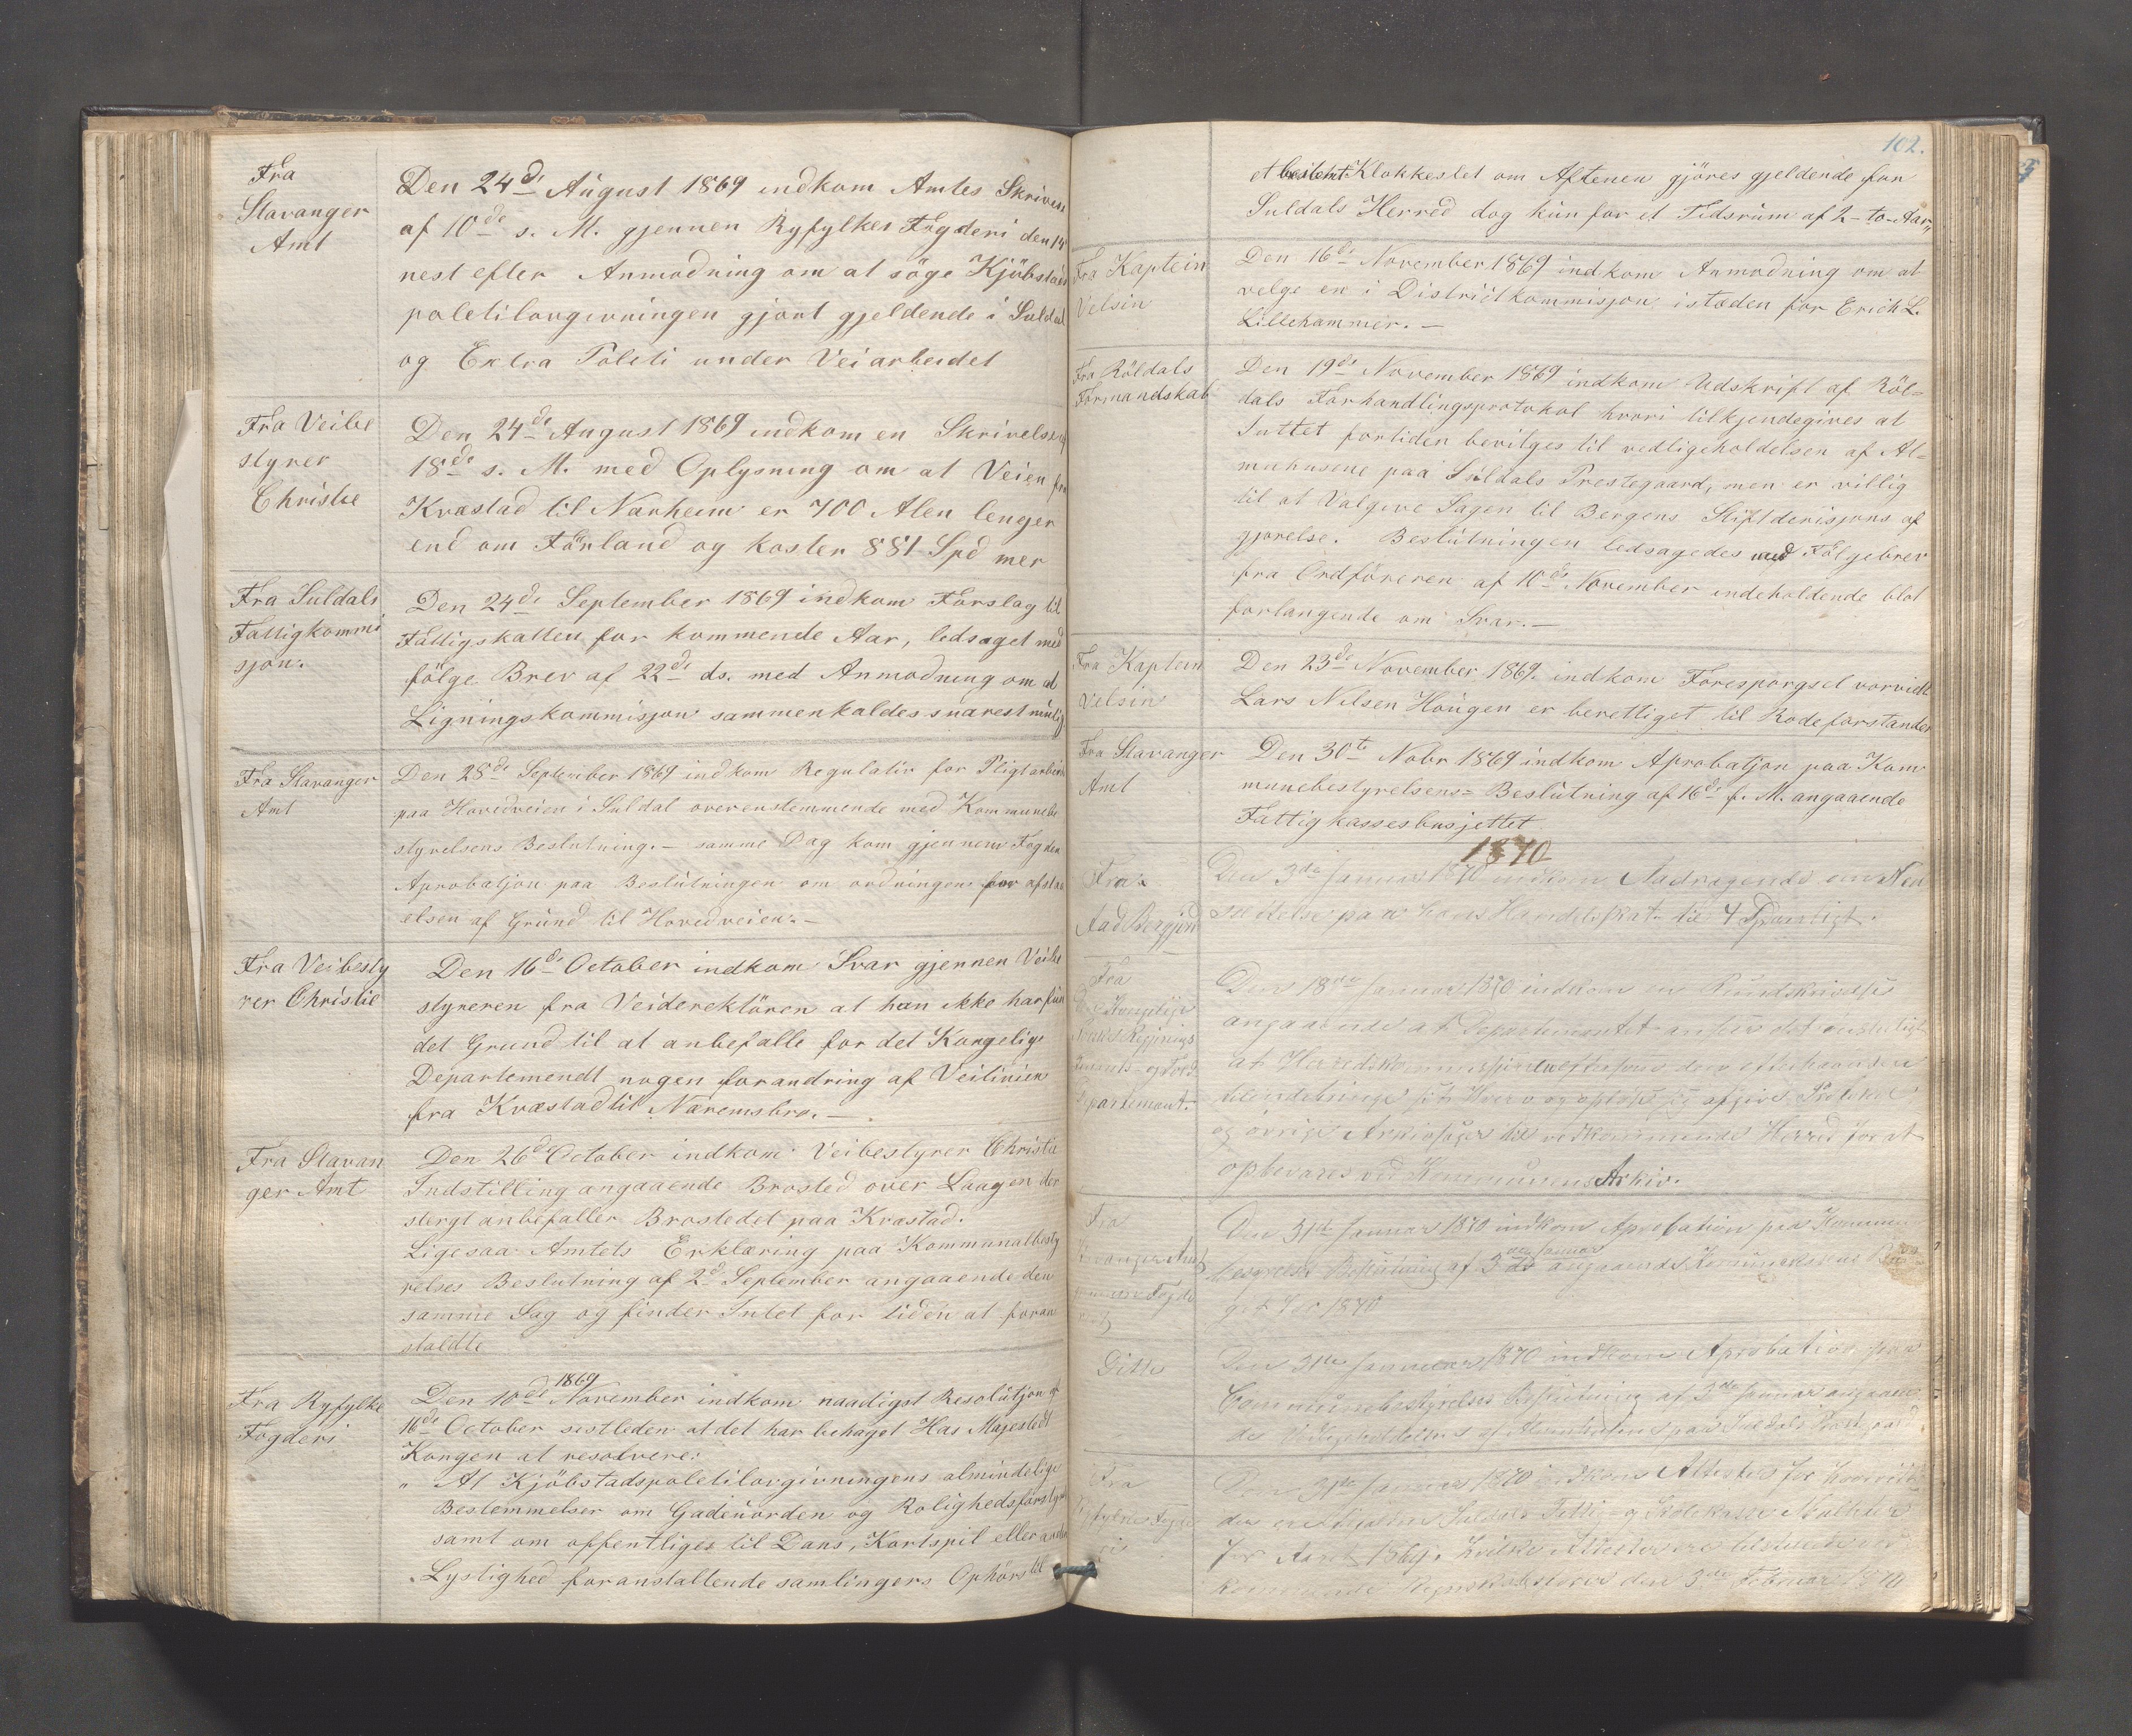 Fra
Stavanger
Amt
Den 24de August 1869 indkom Amtes Skrivelse
af 10de s. M. gjennen Ryfylkes Fogderi den 14
nest efter Anmodning om at söge Kjöbstads
poletilovgivningen gjort gjeldende i Suldal
og Extra Politi under Veiarbeidet
Fra Veibe
styrer
Christie
Den 24de August 1869 indkom en Skrivelse af
18de s. M. med Oplysning om at Veien fra
Kvastad til Narheim er 700 Alen lenger
end om Förland og koster 881 Spd mer
Fra Suldals
Fattigkommi
sjon.
Den 24de September 1869 indkom Forslag til
Fattigskatten for kommende Aar, ledsaget med
fölge Brev af 22de ds. med Anmodning om at
Ligningskommisjon sammenkaldes snarest mulig
Fra Stavanger
Amt
Den 28de September 1869 indkom Regulativ for Pligtarbeide
paa Hovedveien i Suldal overenstemmende med Kommunebe
styrelsens Beslutning. – samme Dag kom gjennem Fogden
Aprobatjon paa Beslutningen om ordningen for afstaa
elsen af Grund til Hovedveien. –
Fra Veibesty
rer Christie
Den 16de October indkom Svar gjennen Veibe
styreren fra Veiderektören at han ikke har fun
det Grund til at anbefalle for det Kongelige
Departemendt nogen forandring af Veilinien
fra Kvastad til Naremsbro. –
Fra Stavan
ger Amt
Den 26de October indkom Veibestyrer Christie
Indstilling angaaende Brosted over Laagen der
stergt anbefaller Brostedet paa Kvastad.
Ligesaa Amtets Erklæring paa Kommunalbesty
relses Beslutning af 2de September angaaende den
samme Sag og finder Intet for tiden at foran
staldte
Fra Ryfylke
Fogderi
1869
Den 10de November indkom naadigst Resolutjon af
16de October sistleden at det har behaget Has Majestedt
Kongen at resolvere:
" At Kjöbstadspoletilovgivningens almindelige
Bestemmelser om Gadeuorden og Rolighedsforstyr
samt om offentliges til Dans, Kortspil eller anden
Lystighed foranstaltende samlingers Ophörs til
102.
et bestemt Klokkeslet om Aftenen gjöres gjeldende for
Suldals Herred dog kun for et Tidsrum af 2 - to - Aar"
Fra Kaptein
Velsin
Den 16de November 1869 indkom Anmodning om at
velge en i Distriktkommisjon istæden for Erich L.
Lillehammer. –
Fra Röldals
Formandskab
Den 19de November 1869 indkom Udskrift af Röl=
dals Forhandlingsprotokol hvori tilkjendegives at
Inttet fortiden bevilges til vedligeholdelsen af Al=
muhusene paa Suldals Prestegaard, men er villig
til at Valgive Sagen til Bergens Stiftderisjons af
gjorelse. Beslutningen ledsagedes med Fölgebrev
fra Ordföreren af 10de November indeholdende blot
forlangende om Svar. –
Fra Kaptein
Velsin
Den 23de November 1869. indkom Forespörgsel vorvidt
Lars Nilsen Haugen er berettiget til Rodeforstander
Fra Stavanger
Amt
Den 30te Nobr 1869 indkom Aprobatjon paa Kom
munebestyrelsens= Beslutning af 16de f. M. angaaende
Fattigkassesbusjettet
1870
Fra
Den 3de Januar 1870 indkom Andragende om Ned
settelse paa hans Handelsskat til 4 Spd aarligt.
Fra
Den 18de Januar 1870 indkom en Rundskrivelse
angaaende at Departementet anser det
at
og övrige Arkivsager til vedkommende Herred for at
opbevares ved Kommunens Arkiv.
Fra
Stavanger Amt
Den 31te Januar 1870 indkom Aprobation paa Kommune
bestyrelses Beslutning af 3de Januar angaaende
for 1870
Ditto
Den 31te Januar 1870 indkom Aprobation paa
Communebestyrelses Beslutning af 3de Januar angaaen
de Vedligeholdelsen af Almuhusene paa Suldals Prestgaard
Fra
Den 31te Januar 1870 indkom Attester for hvorvidt
Suldals Fattig- og Skolekasse
for Aaret 1869, hvilke Attester ere tilstillede ved
kommende Regnskabsförer den 3de Februar 1870